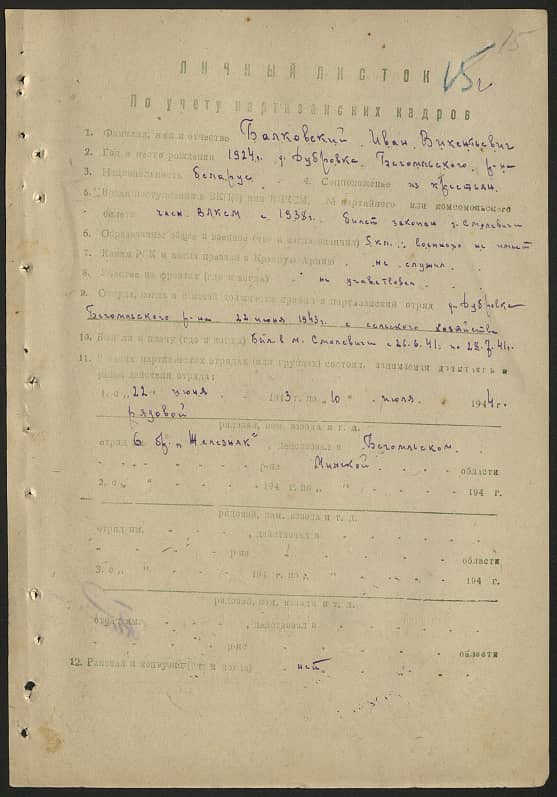 15
15
ЛИЧНЫЙ ЛИСТОК
По учету партизанских кадров
1. Фамилия, имя и отчество Балковский Иван Викентьевич
2. Год и место рождения 1924г. д. Дубровка Бегомльского р-на
3. Национальность беларус 4. Соцположение из крестьян.
5. Время вступления в ВКП(б) или ВЛКСМ, № партийного или комсомольского
билета член ВЛКСМ с 1938г. билет закопан д. Смолевичи
6. Образование общее и военное (где и когда окончил) 5 кл. военного не имеет
7. Каким РВК и когда призван в Красную Армию не служил.
8. Участие на фронтах (где и когда) не участвовал.
9. Откуда, когда и какой должности прибыл в партизанский отряд д. Дубровка
Бегомльского р-на 22 июня 1943г. с сельского хозяйства
10. Был ли в плену (где и когда) Был в м. Смолевичи с 26.6.41. по 28.7.41г.
11. В каких партизанских отрядах (или группах) состоял, занимаемая должность и
район действия отряда:
1. с „22" июня 1943г. по „10" июля 1944г.
рядовой
рядовой, ком. взвода и т. д.
отряд 6 бр. „Железняк", действовал в Бегомльском
р-не Минской области
2. с „ " 194 г. по „ " 194 г.
рядовой, ком. взвода и т. д.
отряд им. , действовал в
р-не области
3. с „ " 194 г. по „ " 194 г.
рядовой, ком. взвода и т. д.
отряд им. , действовал в
р-не области
12. Ранения и контузии (где и когда) нет.